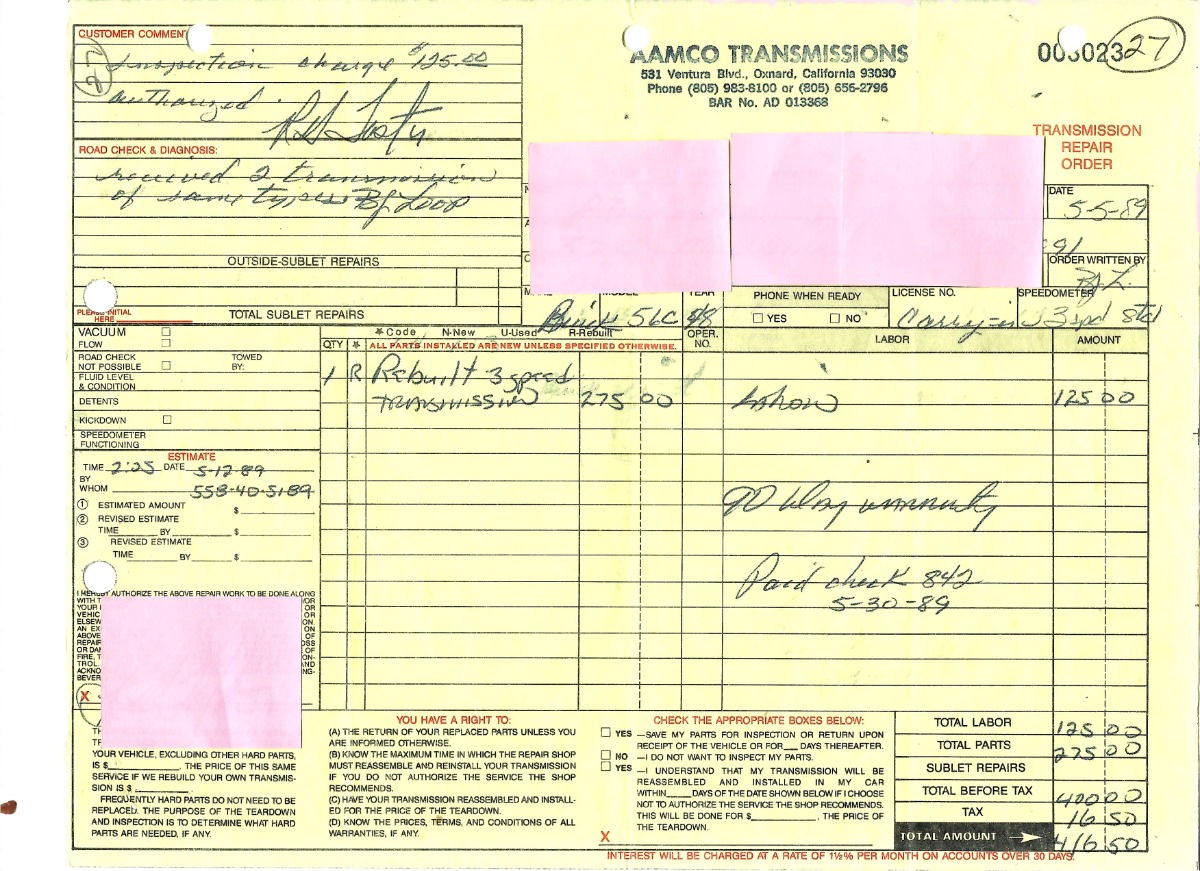 CUSTOMER COMMENT
Inspection charge $125.00
authorized
ROAD CHECK & DIAGNOSIS:
received 2 transmission
of same types
OUTSIDE-SUBLET REPAIRS
PLEASE INITIAL HERE
TOTAL SUBLET REPAIRS
AAMCO TRANSMISSIONS
531 Ventura Blvd., Oxnard, California 93030
Phone (805) 983-8100 or (805) 656-2796
BAR No. AD 013368
003023
27
TRANSMISSION
REPAIR
ORDER
DATE
5-5-89
91
ORDER WRITTEN BY
MODEL YEAR PHONE WHEN READY LICENSE NO. SPEEDOMETER
Buick 56C 58 YES NO Carry-in 3 spd std
VACUUM
FLOW
ROAD CHECK NOT POSSIBLE TOWED BY:
FLUID LEVEL & CONDITION
DETENTS
KICKDOWN
SPEEDOMETER FUNCTIONING
*Code N-New U-Used R-Rebuilt
QTY * ALL PARTS INSTALLED ARE NEW UNLESS SPECIFIED OTHERWISE. OPER. NO. LABOR AMOUNT
1 R Rebuilt 3 speed
TRANSMISSION 275 00 Labor 125 00
90 day warranty
Paid check 842
5-30-89
ESTIMATE
TIME 2:25 DATE 5-12-89
BY WHOM 558-40-5189
1 ESTIMATED AMOUNT $
2 REVISED ESTIMATE
TIME BY $
3 REVISED ESTIMATE
TIME BY $
I HEREBY AUTHORIZE THE ABOVE REPAIR WORK TO BE DONE ALONG
X
YOUR VEHICLE, EXCLUDING OTHER HARD PARTS,
IS $ . THE PRICE OF THIS SAME
SERVICE IF WE REBUILD YOUR OWN TRANSMIS-
SION IS $ .
FREQUENTLY HARD PARTS DO NOT NEED TO BE
REPLACED. THE PURPOSE OF THE TEARDOWN
AND INSPECTION IS TO DETERMINE WHAT HARD
PARTS ARE NEEDED, IF ANY.
YOU HAVE A RIGHT TO:
(A) THE RETURN OF YOUR REPLACED PARTS UNLESS YOU
ARE INFORMED OTHERWISE.
(B) KNOW THE MAXIMUM TIME IN WHICH THE REPAIR SHOP
MUST REASSEMBLE AND REINSTALL YOUR TRANSMISSION
IF YOU DO NOT AUTHORIZE THE SERVICE THE SHOP
RECOMMENDS.
(C) HAVE YOUR TRANSMISSION REASSEMBLED AND INSTALL-
ED FOR THE PRICE OF THE TEARDOWN.
(D) KNOW THE PRICES, TERMS, AND CONDITIONS OF ALL
WARRANTIES, IF ANY.
CHECK THE APPROPRIATE BOXES BELOW:
YES —SAVE MY PARTS FOR INSPECTION OR RETURN UPON
RECEIPT OF THE VEHICLE OR FOR DAYS THEREAFTER.
NO —I DO NOT WANT TO INSPECT MY PARTS.
YES —I UNDERSTAND THAT MY TRANSMISSION WILL BE
REASSEMBLED AND INSTALLED IN MY CAR
WITHIN DAYS OF THE DATE SHOWN BELOW IF I CHOOSE
NOT TO AUTHORIZE THE SERVICE THE SHOP RECOMMENDS.
THIS WILL BE DONE FOR $ . THE PRICE OF
THE TEARDOWN.
X
TOTAL LABOR 125 00
TOTAL PARTS 275 00
SUBLET REPAIRS
TOTAL BEFORE TAX 400 00
TAX 16 50
TOTAL AMOUNT 416 50
INTEREST WILL BE CHARGED AT A RATE OF 1½% PER MONTH ON ACCOUNTS OVER 30 DAYS.